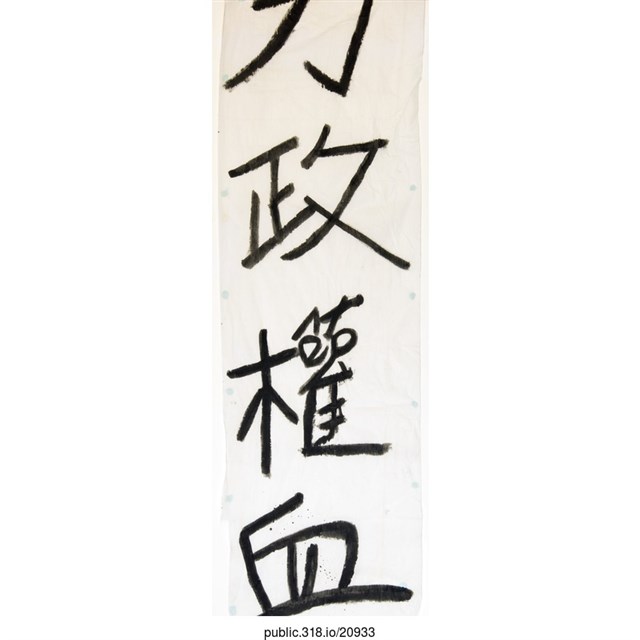 力政權血
public.318.io/20933